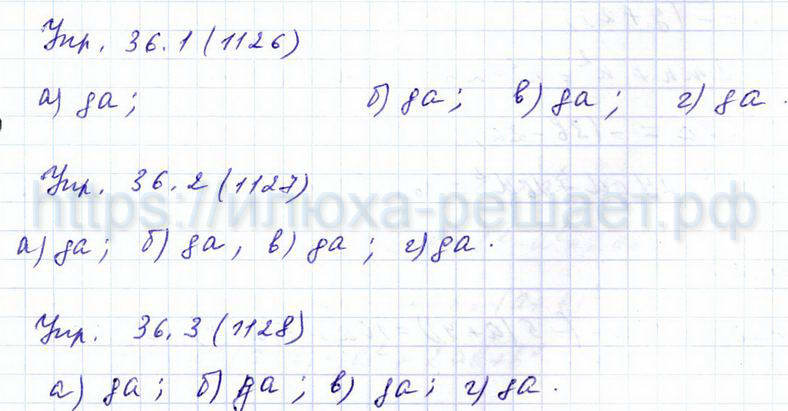 Упр. 36.1 (1126)
а) да; б) да; в) да; г) да.
Упр. 36.2 (1127)
https://илюха-решает.рф
а) да; б) да, в) да; г) да.
Упр. 36.3 (1128)
а) да; б) да; в) да; г) да.